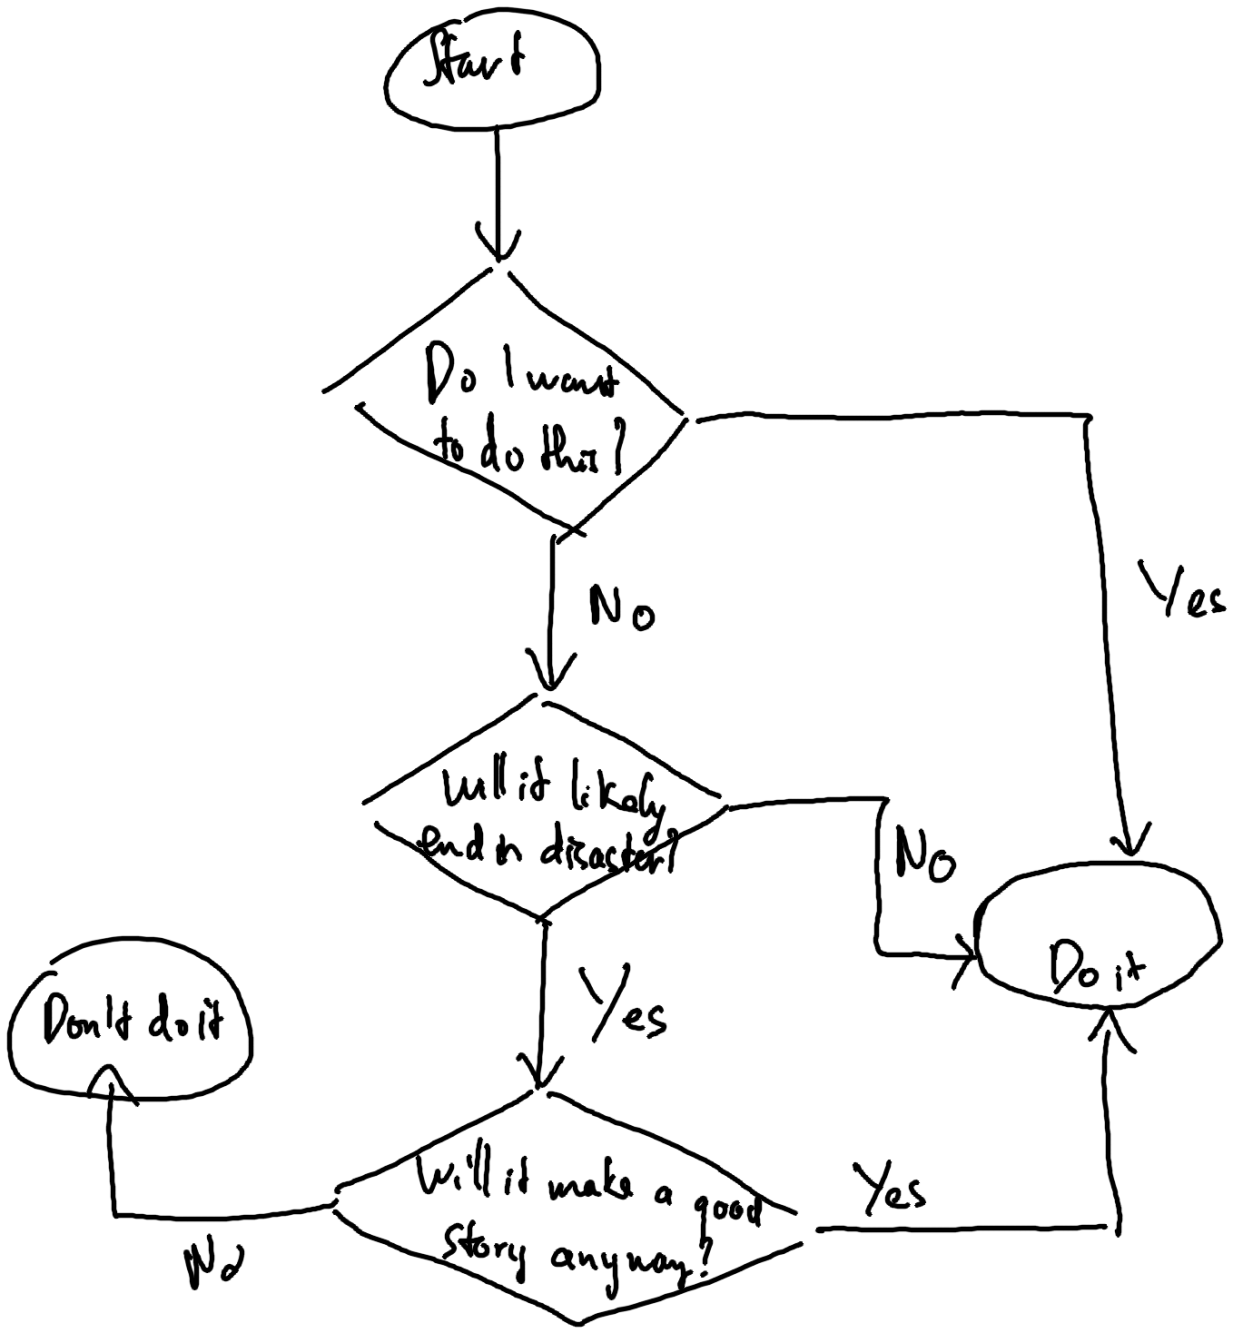 Start
Do I want
to do this?
Yes
No
Will it likely
end in disaster?
No
Do it
Don't do it
Yes
Will it make a good
story anyway?
Yes
No